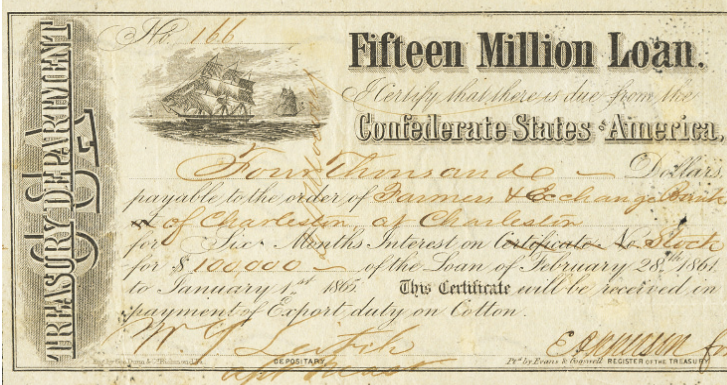 TREASURY DEPARTMENT
CSA
No. 166
Fifteen Million Loan.
I Certify that there is due from the
Confederate States of America,
Four Thousand Dollars
payable to the order of Farmers & Exchange Bank
of Charleston, at Charleston
for Six Months Interest on Certificate No Stock
for $ 100,000 of the Loan of February 28th 1861
to January 1st 1865 This Certificate will be received in
payment of Export duty on Cotton.
DEPOSITARY
Ptd by Evans & Cogswell REGISTER OF THE TREASURY